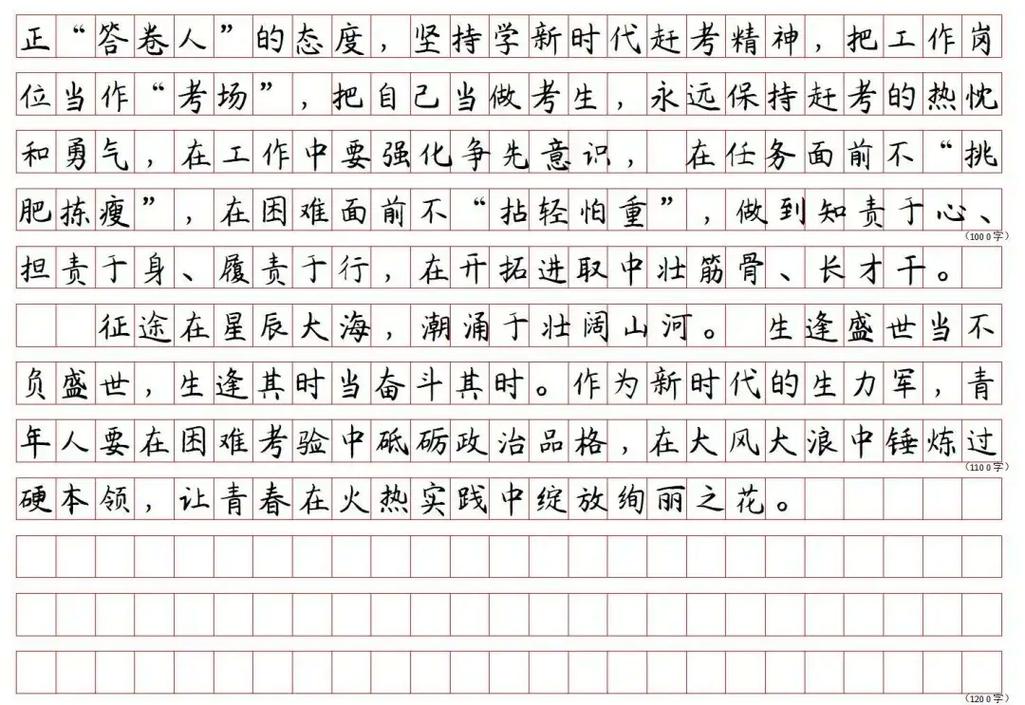 正“答卷人”的态度，坚持学新时代赶考精神，把工作岗
位当作“考场”，把自己当做考生，永远保持赶考的热忱
和勇气，在工作中要强化争先意识，　在任务面前不“挑
肥拣瘦”，在困难面前不“拈轻怕重”，做到知责于心、
（1000字）
担责于身、履责于行，在开拓进取中壮筋骨、长才干。
　　征途在星辰大海，潮涌于壮阔山河。　生逢盛世当不
负盛世，生逢其时当奋斗其时。作为新时代的生力军，青
年人要在困难考验中砥砺政治品格，在大风大浪中锤炼过
（1100字）
硬本领，让青春在火热实践中绽放绚丽之花。
（1200字）